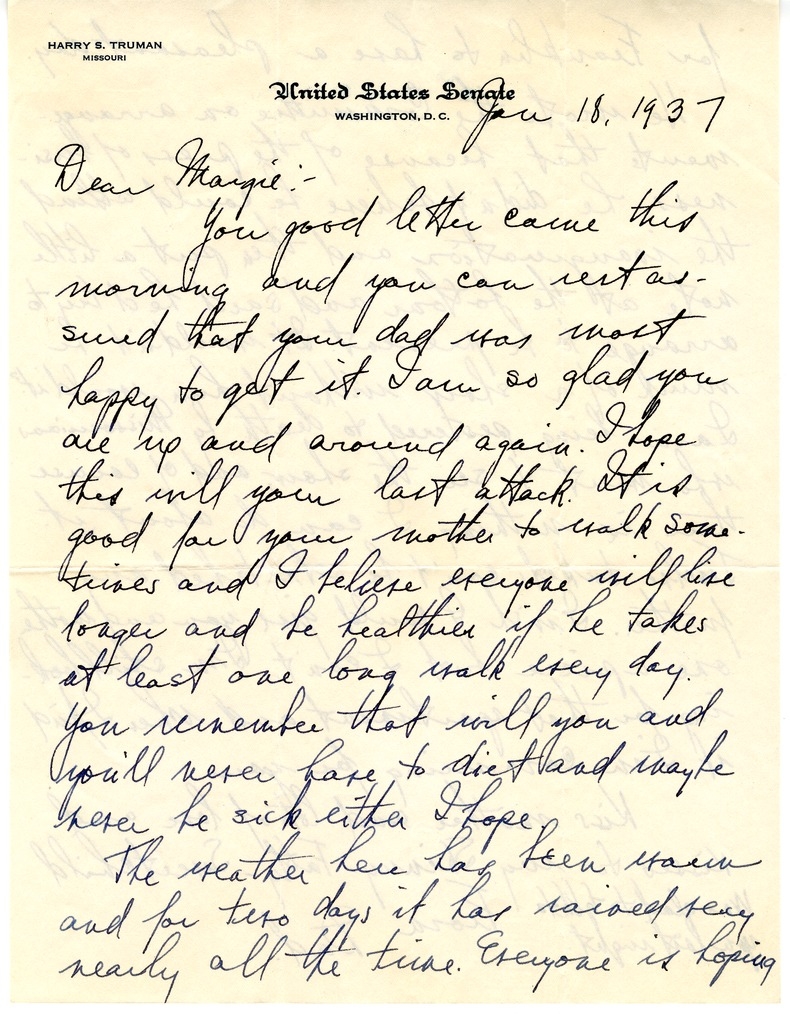 HARRY S. TRUMAN
MISSOURI
United States Senate
WASHINGTON, D. C.
Jan 18, 1937
Dear Margie:-
You good letter came this
morning and you can rest as-
sured that your dad was most
happy to get it. I am so glad you
are up and around again. I hope
this will your last attack. It is
good for your mother to walk some-
times and I believe everyone will live
longer and be healthier if he takes
at least one long walk every day.
You remember that will you and
you'll never have to diet and maybe
never be sick either I hope.
The weather here has been warm
and for two days it has rained very
nearly all the time. Everyone is hoping